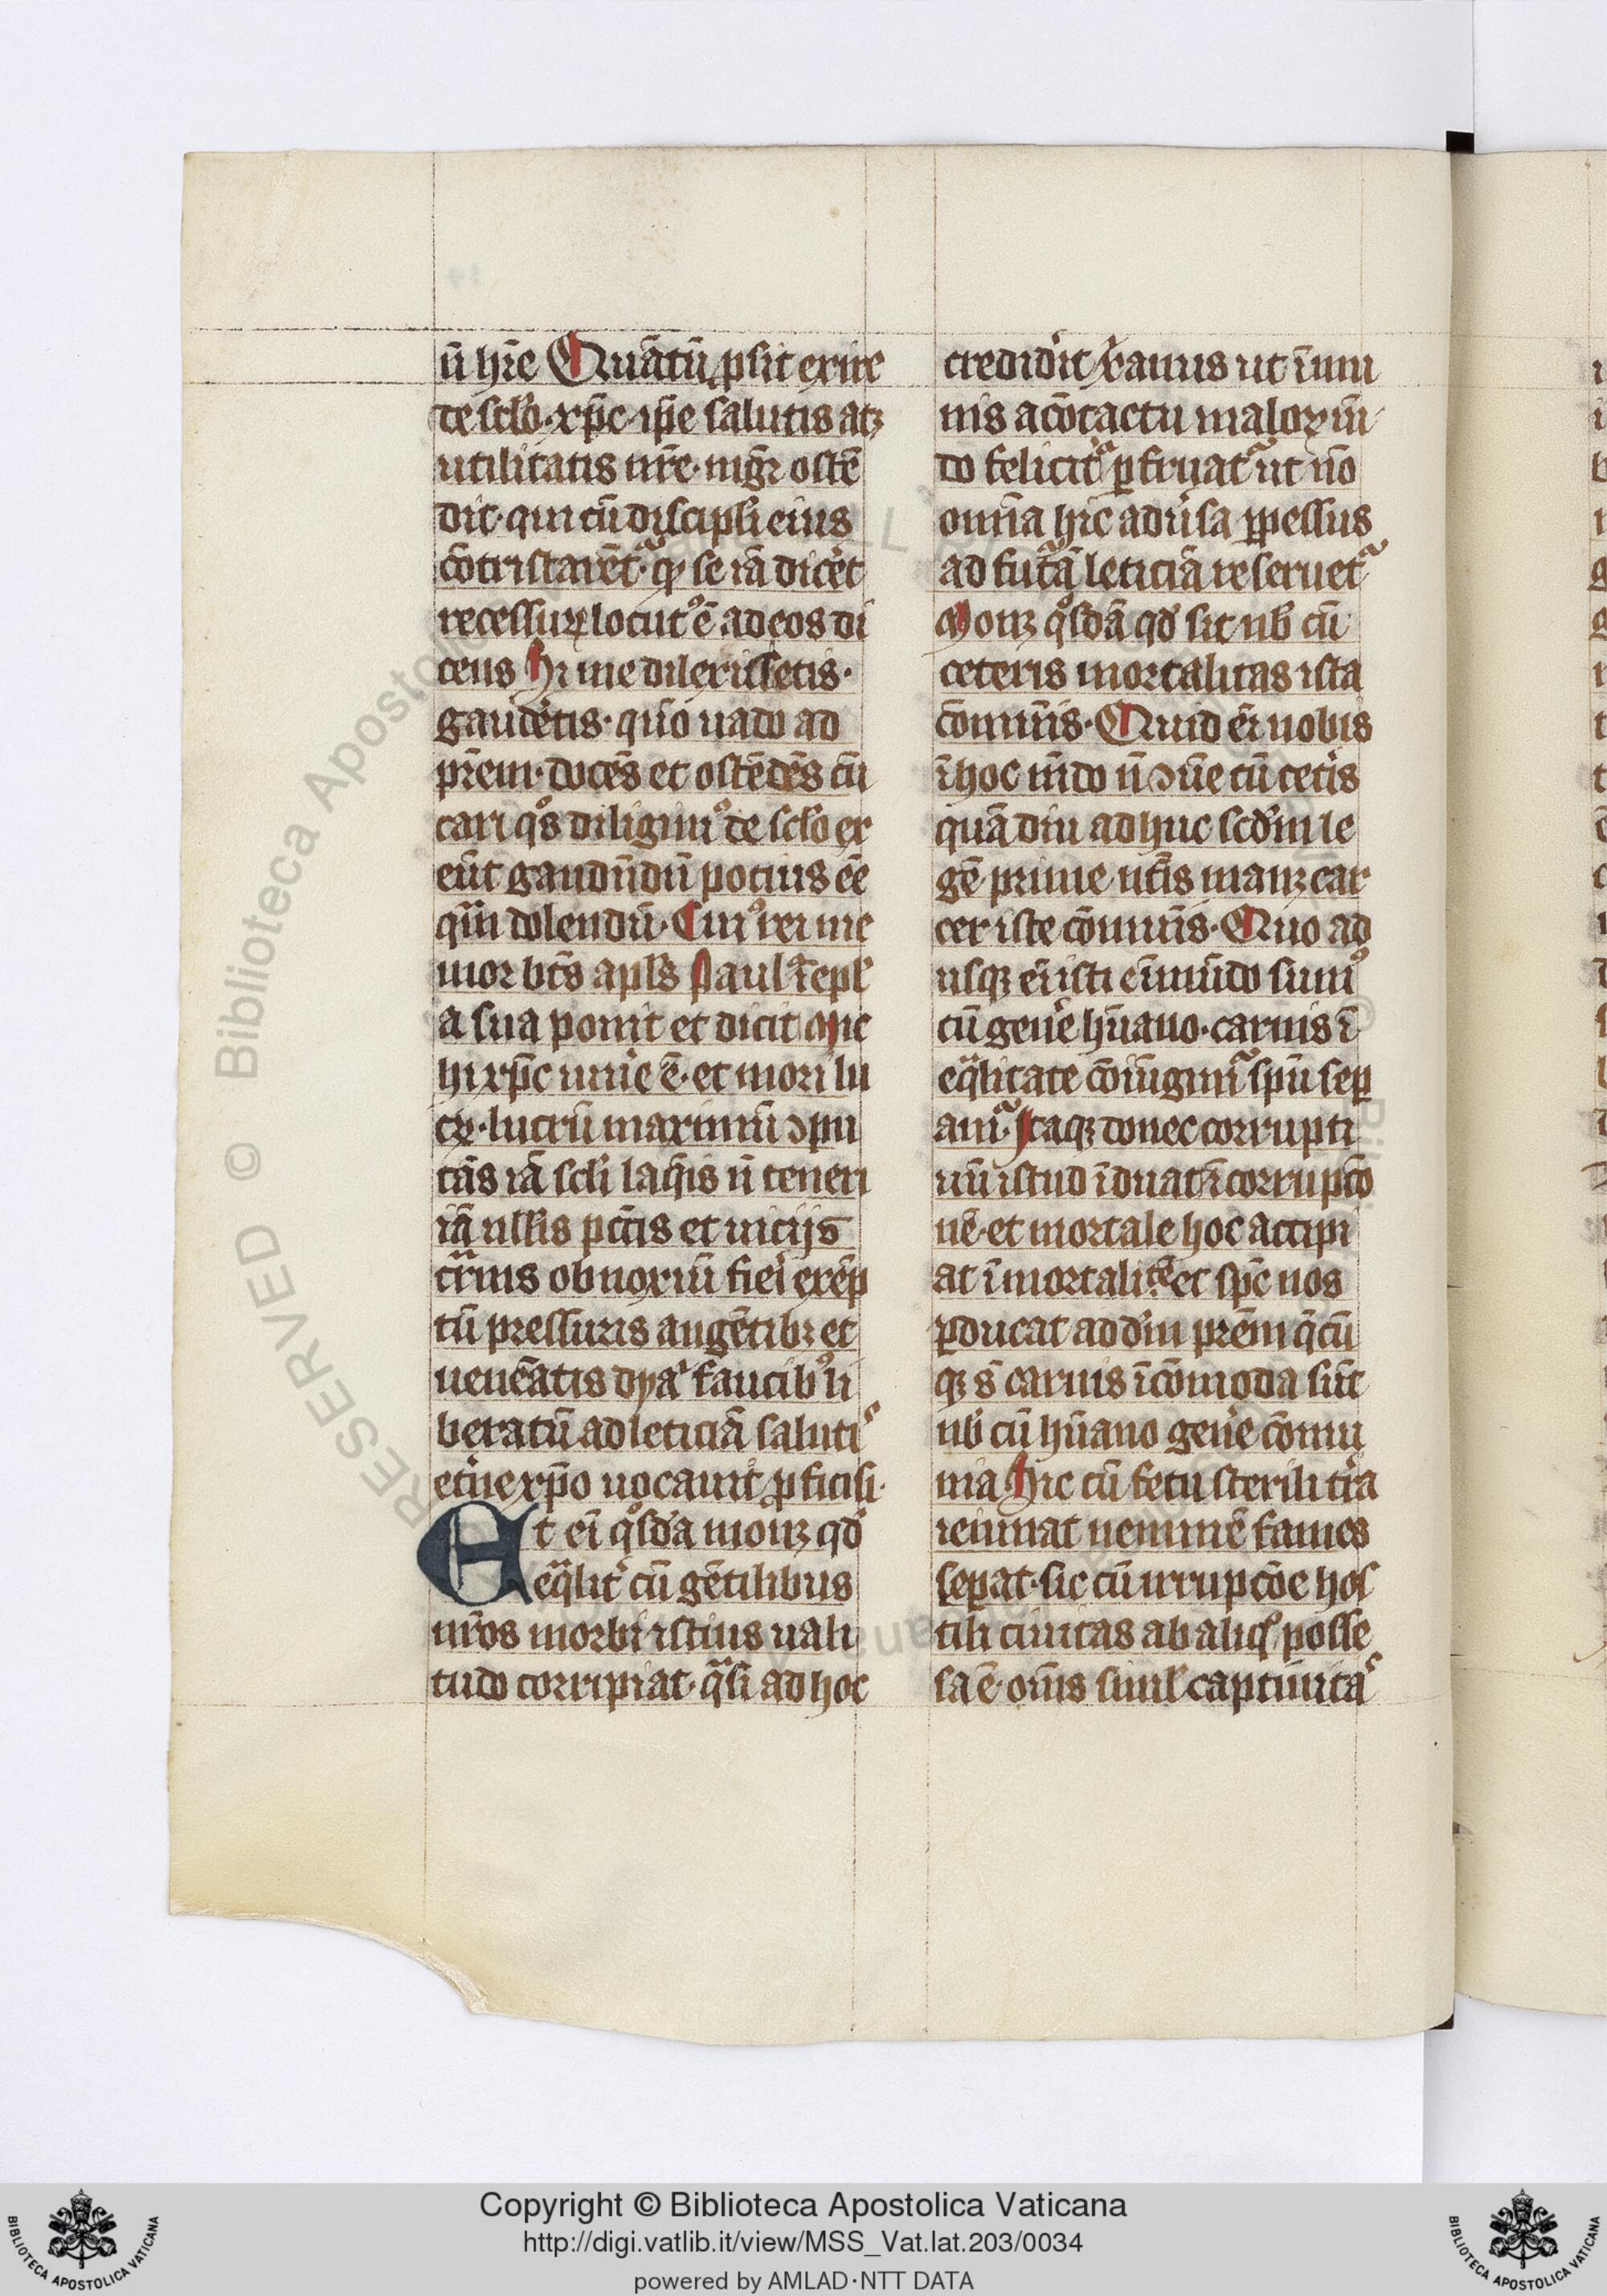 n̄ hr̄e Quātū ꝓsit exire
de sclo·xp̄c·ip̄e salutis atꝫ
utilitatis nr̄e·mgr̄ ostē
dit·qui cū discipli eius
cōtristarēt᷑·qꝛ se iā dicͤet
recessuꝝ locutꝰ ē ad eos di
cens Si me dilexissetis·
gaudetis·qūo uado ad
pr̄em·docēs et ostēdēs cū
cari qͦs diligimꝰ de sclo ex
eūt gaudn̄dū pocius eē
qͣm dolendū·Cuiꝰ rei me
mor btūs apl̄s Paul ī epl̄
a sua ponit et dicit Mic
hi xp̄c uiuͤe ē·et mori lu
cꝝ·lucrū maximū ↄpu
tās iā scl̄i laq̄is n̄ teneri
iā ull̄is pctīs et uicijs
carnis obnoxiū fieͥ exēp
tū pressuris angētibꝫ et
uenēatis dyaͥ faucibꝰ li
beratū ad leticiā salutiˢ
etͤne xp̄o uocanͭ ꝓficisi·
At ei qͦsdā mouꝫ qd̄
eqͣlit᷑ cū gētilibus
nr̄os morbi istius uali
tudo corripiat·qͣsi ad hoc
credidͤit xᷓanus ut īmu
nis a cōtactu maloꝝ mū
do felicit᷑ ꝑfruat᷑ ut nō
omīa hic adūsa ꝑpessus
ad futᷓā leticiā reseruet᷑
Mouꝫ qͦsdā qd̄ sit nb̄ cū
ceteris mortalitas ista
cōmun̄s·Quid ei nobis
ī hoc mūdo n̄ ↄūe cū cetͤis
quā diu adhuc scd̄m le
gē prime ntīs manꝫ car
cer iste cōmun̄s·Quo ad
usqꝫ eī isti eī mūdo sumꝰ
cū genͤe hūano·carnis ī
eqͣlitate cōiūgimͬ spū sep
amͬ Itaqꝫ donec corrupti
uū istud īduat᷑ ī corrupcō
nē·et mortale hoc accipi
at īmortalitē et sp̄c nos
ꝑducat ad dm̄ pr̄em q̄cū
qꝫ s̄ carnis īcōmoda sūt
nb̄ cū hūano genͤe cōmu
nia Sic cū fetu sterili tͤra
ieiunat neminē fames
seꝑat·sic cū irrupcōe hos
tili ciuitas ab aliqͦ posse
sa ē·oīs simil᷑ captiuitaˢ
Copyright © Biblioteca Apostolica Vaticana
http://digi.vatlib.it/view/MSS_Vat.lat.203/0034
powered by AMLAD·NTT DATA
BIBLIOTECA APOSTOLICA VATICANA
BIBLIOTECA APOSTOLICA VATICANA